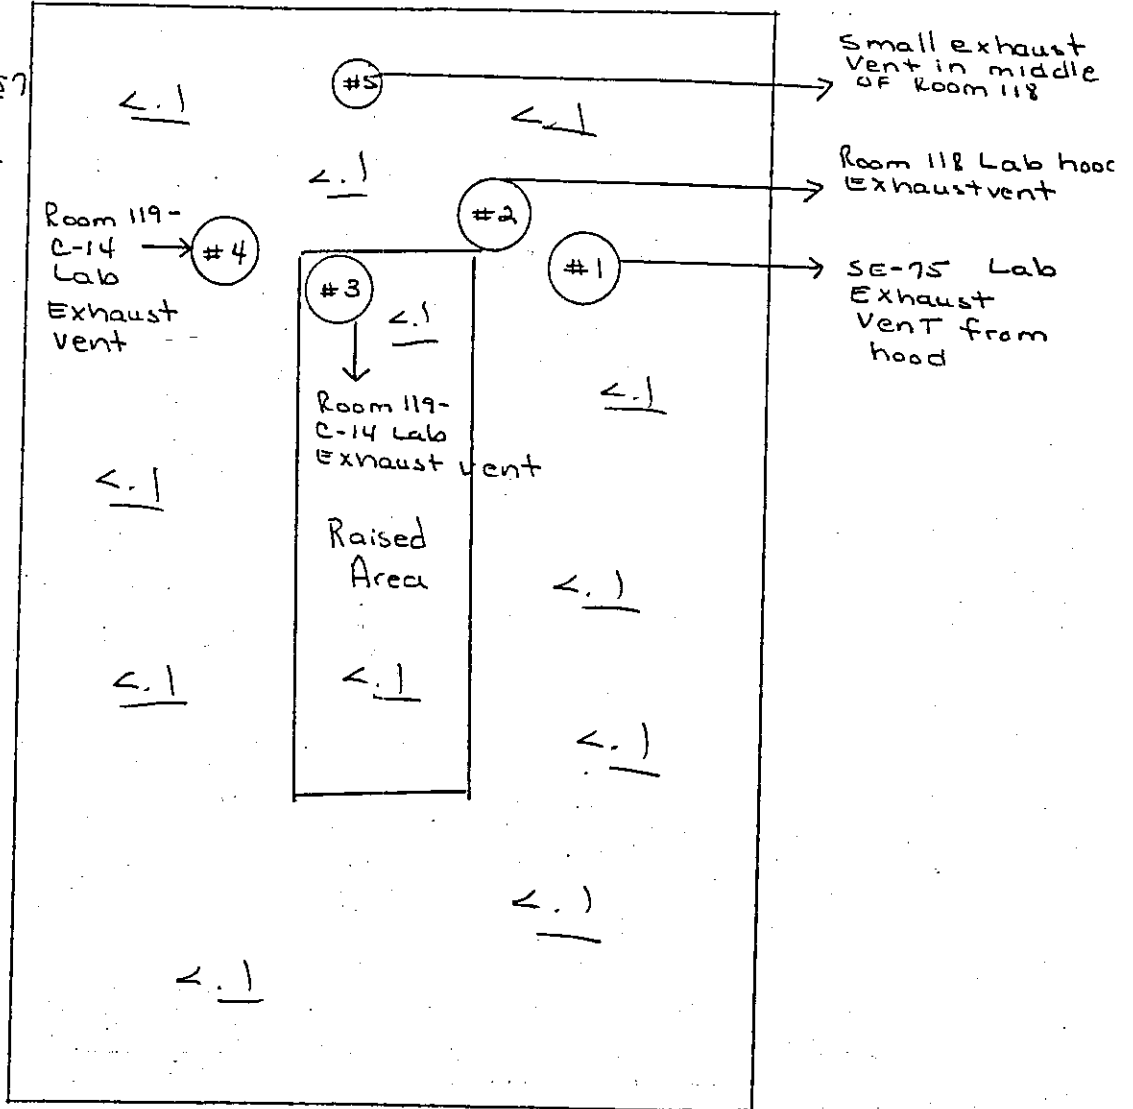 Small exhaust
Vent in middle
OF Room 118
#5
<.1
<.1
<.1
Room 118 Lab hood
Exhaust vent
#2
Room 119-
C-14
Lab
Exhaust
vent
#4
#1
SE-75 Lab
Exhaust
VenT from
hood
#3
<.1
Room 119-
C-14 Lab
Exhaust vent
<.1
<.1
Raised
Area
<.1
<.1
<.1
<.1
<.1
<.1